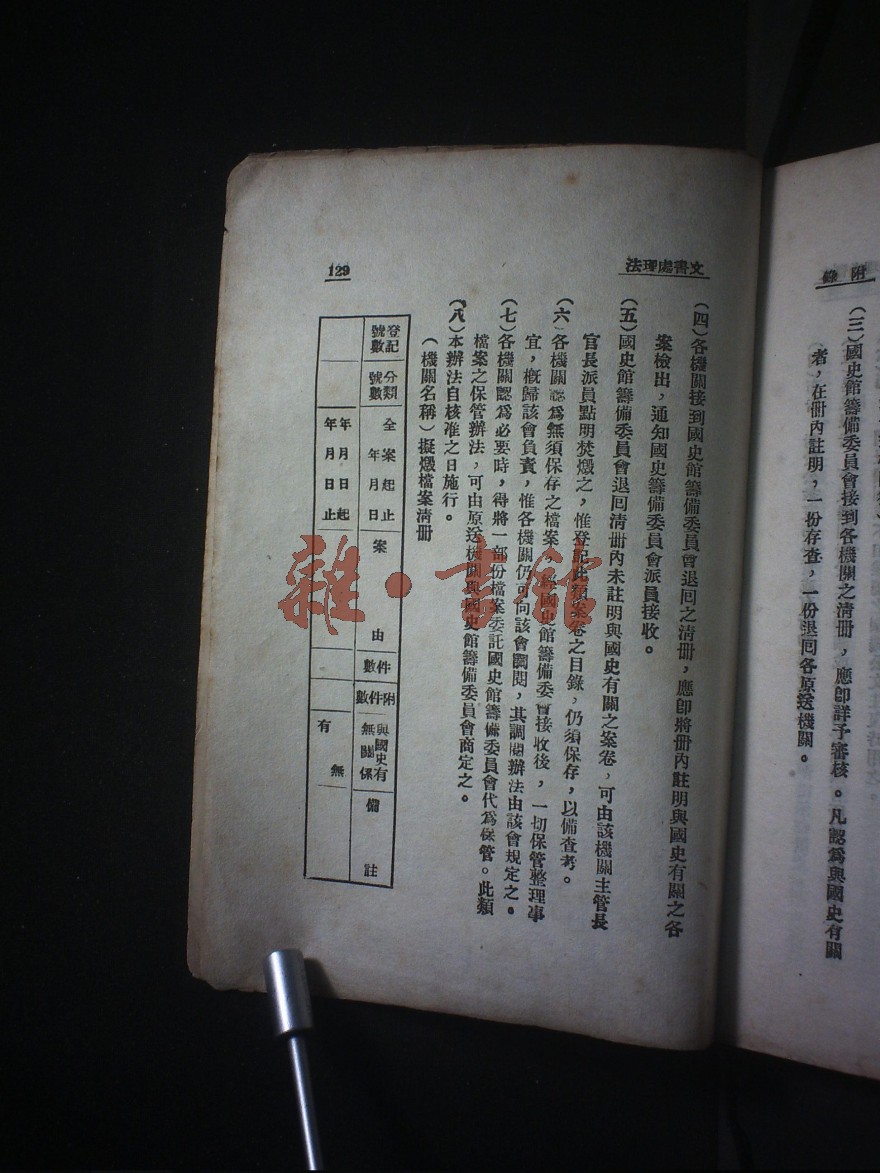 附錄
(三)國史館籌備委員會接到各機關之清册，應卽詳予審核。凡認爲與國史有關
者，在册內註明，一份存查，一份退囘各原送機關。
文書處理法
129
(四)各機關接到國史館籌備委員會退囘之清册，應卽將册內註明與國史有關之各
案檢出，通知國史籌備委員會派員接收。
(五)國史館籌備委員會退囘清册內未註明與國史有關之案卷，可由該機關主管長
官長派員點明焚燬之，惟登記此類案卷之目錄，仍須保存，以備查考。
(六)各機關認爲無須保存之檔案，經國史館籌備委會接收後，一切保管整理事
宜，槪歸該會負責，惟各機關仍可向該會調閱，其調閱辦法由該會規定之。
(七)各機關認爲必要時，得將一部份檔案委託國史館籌備委員會代爲保管。此類
檔案之保管辦法，可由原送機關與國史館籌備委員會商定之。
(八)本辦法自核准之日施行。
(機關名稱)擬燬檔案清册
登記號數
分類號數
全案起止年月日
案由
件數
附件數
與國史有無關係
備註
年月日起
年月日止
無
有
雜·書館